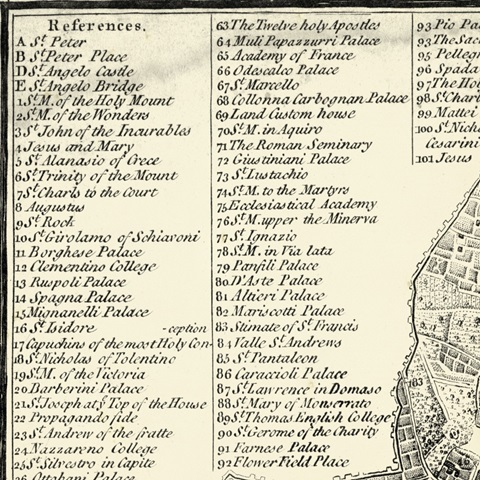 References.
A St. Peter
B St. Peter Place
D St. Angelo Castle
E St. Angelo Bridge
1 St. M. of the Holy Mount
2 St. M. of the Wonders
3 St. John of the Incurables
4 Jesus and Mary
5 St. Alanasio of Grece
6 St. Trinity of the Mount
7 St. Charls to the Court
8 Augustus
9 St. Rock
10 St. Girolamo of Schiavoni
11 Borghese Palace
12 Clementino College
13 Ruspoli Palace
14 Spagna Palace
15 Mignanelli Palace
16 St. Isidore -ception
17 Capuchins of the most Holy Con-
18 St. Nicholas of Tolentino
19 St. M. of the Victoria
20 Barberini Palace
21 St. Joseph at ye Top of the House
22 Propagando fide
23 St. Andrew of the fratte
24 Nazzareno College
25 St. Silvestro in Capite
26 Ottobani Palace
63 The Twelve holy Apostles
64 Muli Papazzurri Palace
65 Academy of France
66 Odescalco Palace
67 St. Marcello
68 Collonna Carbognan Palace
69 Land Custom house
70 St. M. in Aquiro
71 The Roman Seminary
72 Giustiniani Palace
73 St. Lustachio
74 St. M. to the Martyrs
75 Ecclesiastical Academy
76 St. M. upper the Minerva
77 St. Ignazio
78 St. M. in Via lata
79 Panfili Palace
80 D'Aste Palace
81 Altieri Palace
82 Mariscotti Palace
83 Stimate of St. Francis
84 Valle St. Andrews
85 St. Pantaleon
86 Caraccioli Palace
87 St. Lawrence in Domaso
88 St. Mary of Monserrato
89 St. Thomas English College
90 St. Gerome of the Charity
91 Farnese Palace
92 Flower Field Place
93 Pio Pa
93 The Sac
95 Pellegr
96 Spada
97 The Hol
98 St. Charl
99 Mattei
100 St. Nich
Cesarini
101 Jesus
183